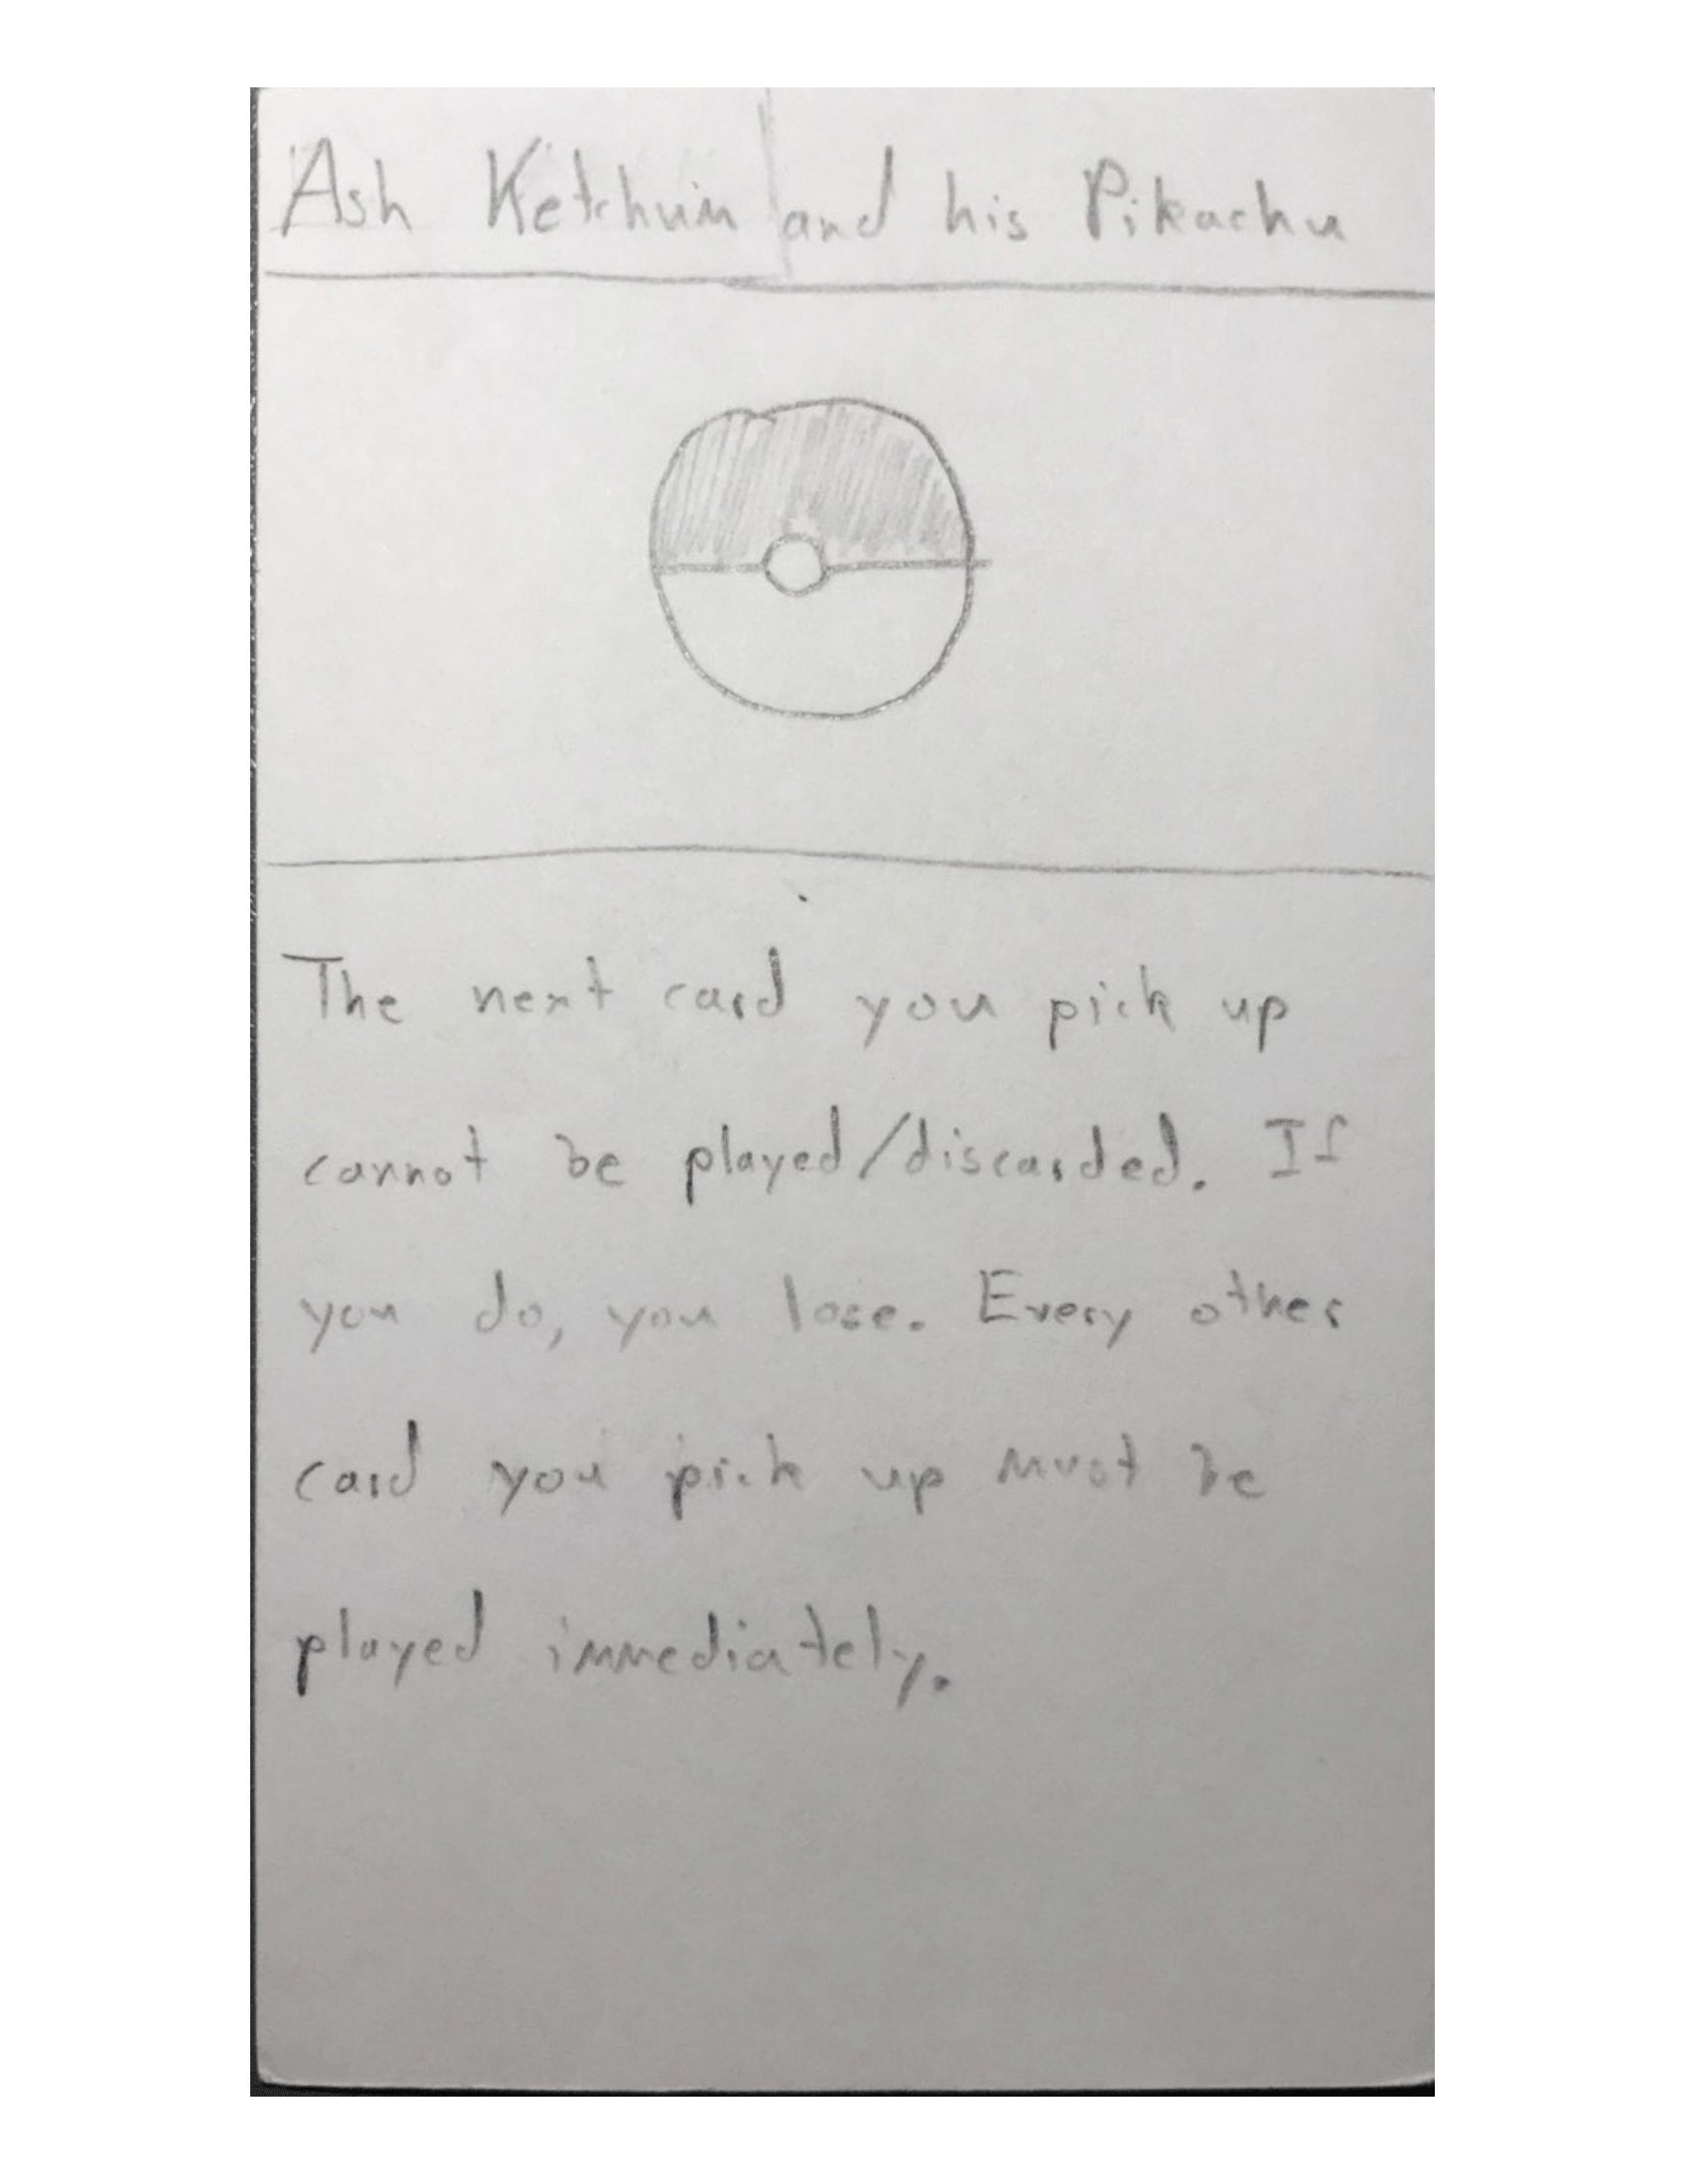 Ash Ketchum and his Pikachu
The next card you pick up
cannot be played/discarded. If
you do, you lose. Every other
card you pick up must be
played immediately.